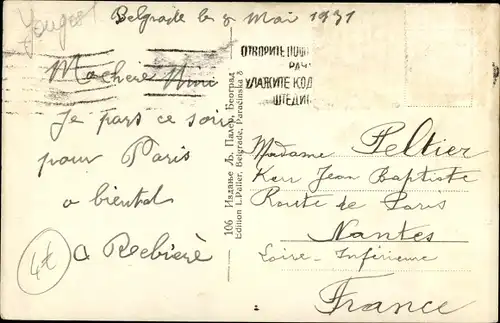 Belgrade le 8 Mai 1931
Ma chère Nini
Je pars ce soir
pour Paris
a bientot
a Rebière
4t
106 Издање Љ. Палер, Београд
Edition L. Pailer, Belgrade, Paraćinska 8
ОТВОРИТЕ
УЛАЖИТЕ КОД
ШТЕДИ
Madame Peltier
Ker Jean Baptiste
Route de Paris
Nantes
Loire-Inférieure
France